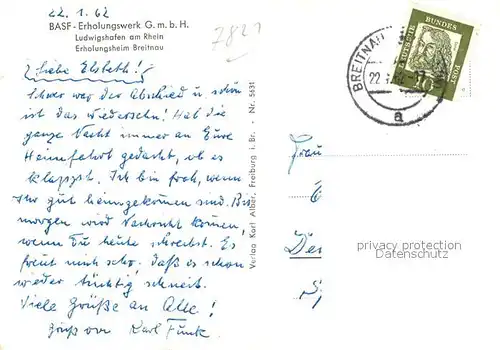 22.1.62
BASF - Erholungswerk G.m.b.H.
Ludwigshafen am Rhein
Erholungsheim Breitnau
7821
Liebe Elsbeth!
Schwer war der Abschied u. schön
ist das Wiedersehn! Hab die
ganze Nacht immer an Eure
Heimfahrt gedacht, ob es
klappt. Ich bin froh, wenn
Ihr gut heimgekommen seid. Bis
morgen wird Nachricht kommen,
wenn Du heute schreibst. Es
freut mich scho. daß es schon
wieder tüchtig schneit.
Viele Grüße an Alle!
Karl Funk
Verlag Karl Alber, Freiburg i. Br. - Nr. 5631
BREITNAU
22.
a
DEUTSCHE
BUNDES
POST
Frau
privacy protection
Dennis Ammann